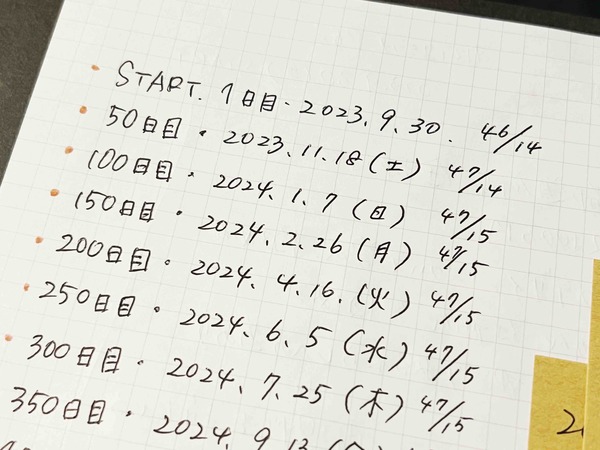 ・START. 1日目・2023. 9. 30. 46/14
・50日目・2023. 11. 18 (土) 47/14
・100日目・2024. 1. 7 (日) 47/15
・150日目・2024. 2. 26 (月) 47/15
・200日目・2024. 4. 16. (火) 47/15
・250日目・2024. 6. 5 (水) 47/15
・300日目・2024. 7. 25 (木) 47/15
350日目・2024. 9